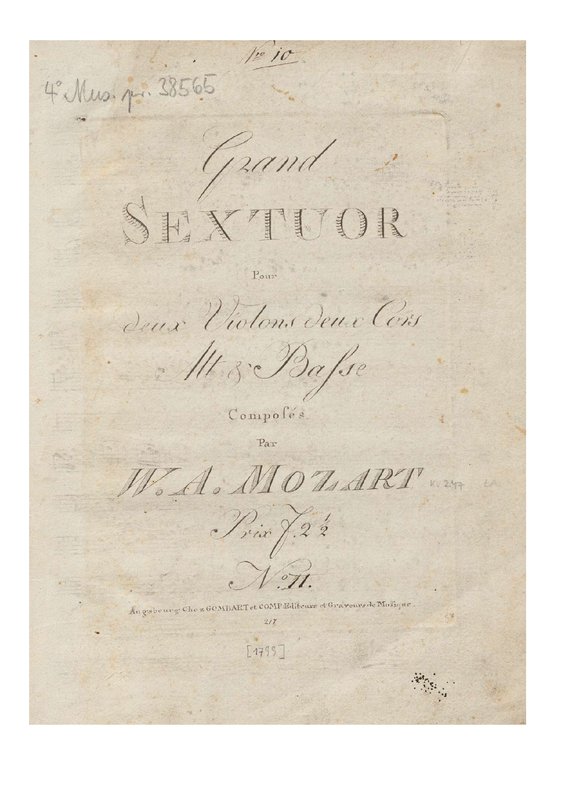 No 10
4° Mus. pr. 38565
Grand
SEXTUOR
Pour
deux Violons deux Cors
Alt & Baſse
Compoſés
Par
W. A. MOZART
K. 247
Prix f. 2 1/2
No. 11.
Augsbourg Chez GOMBART et COMP. Editeurs et Graveurs de Muſique.
217
[1799]